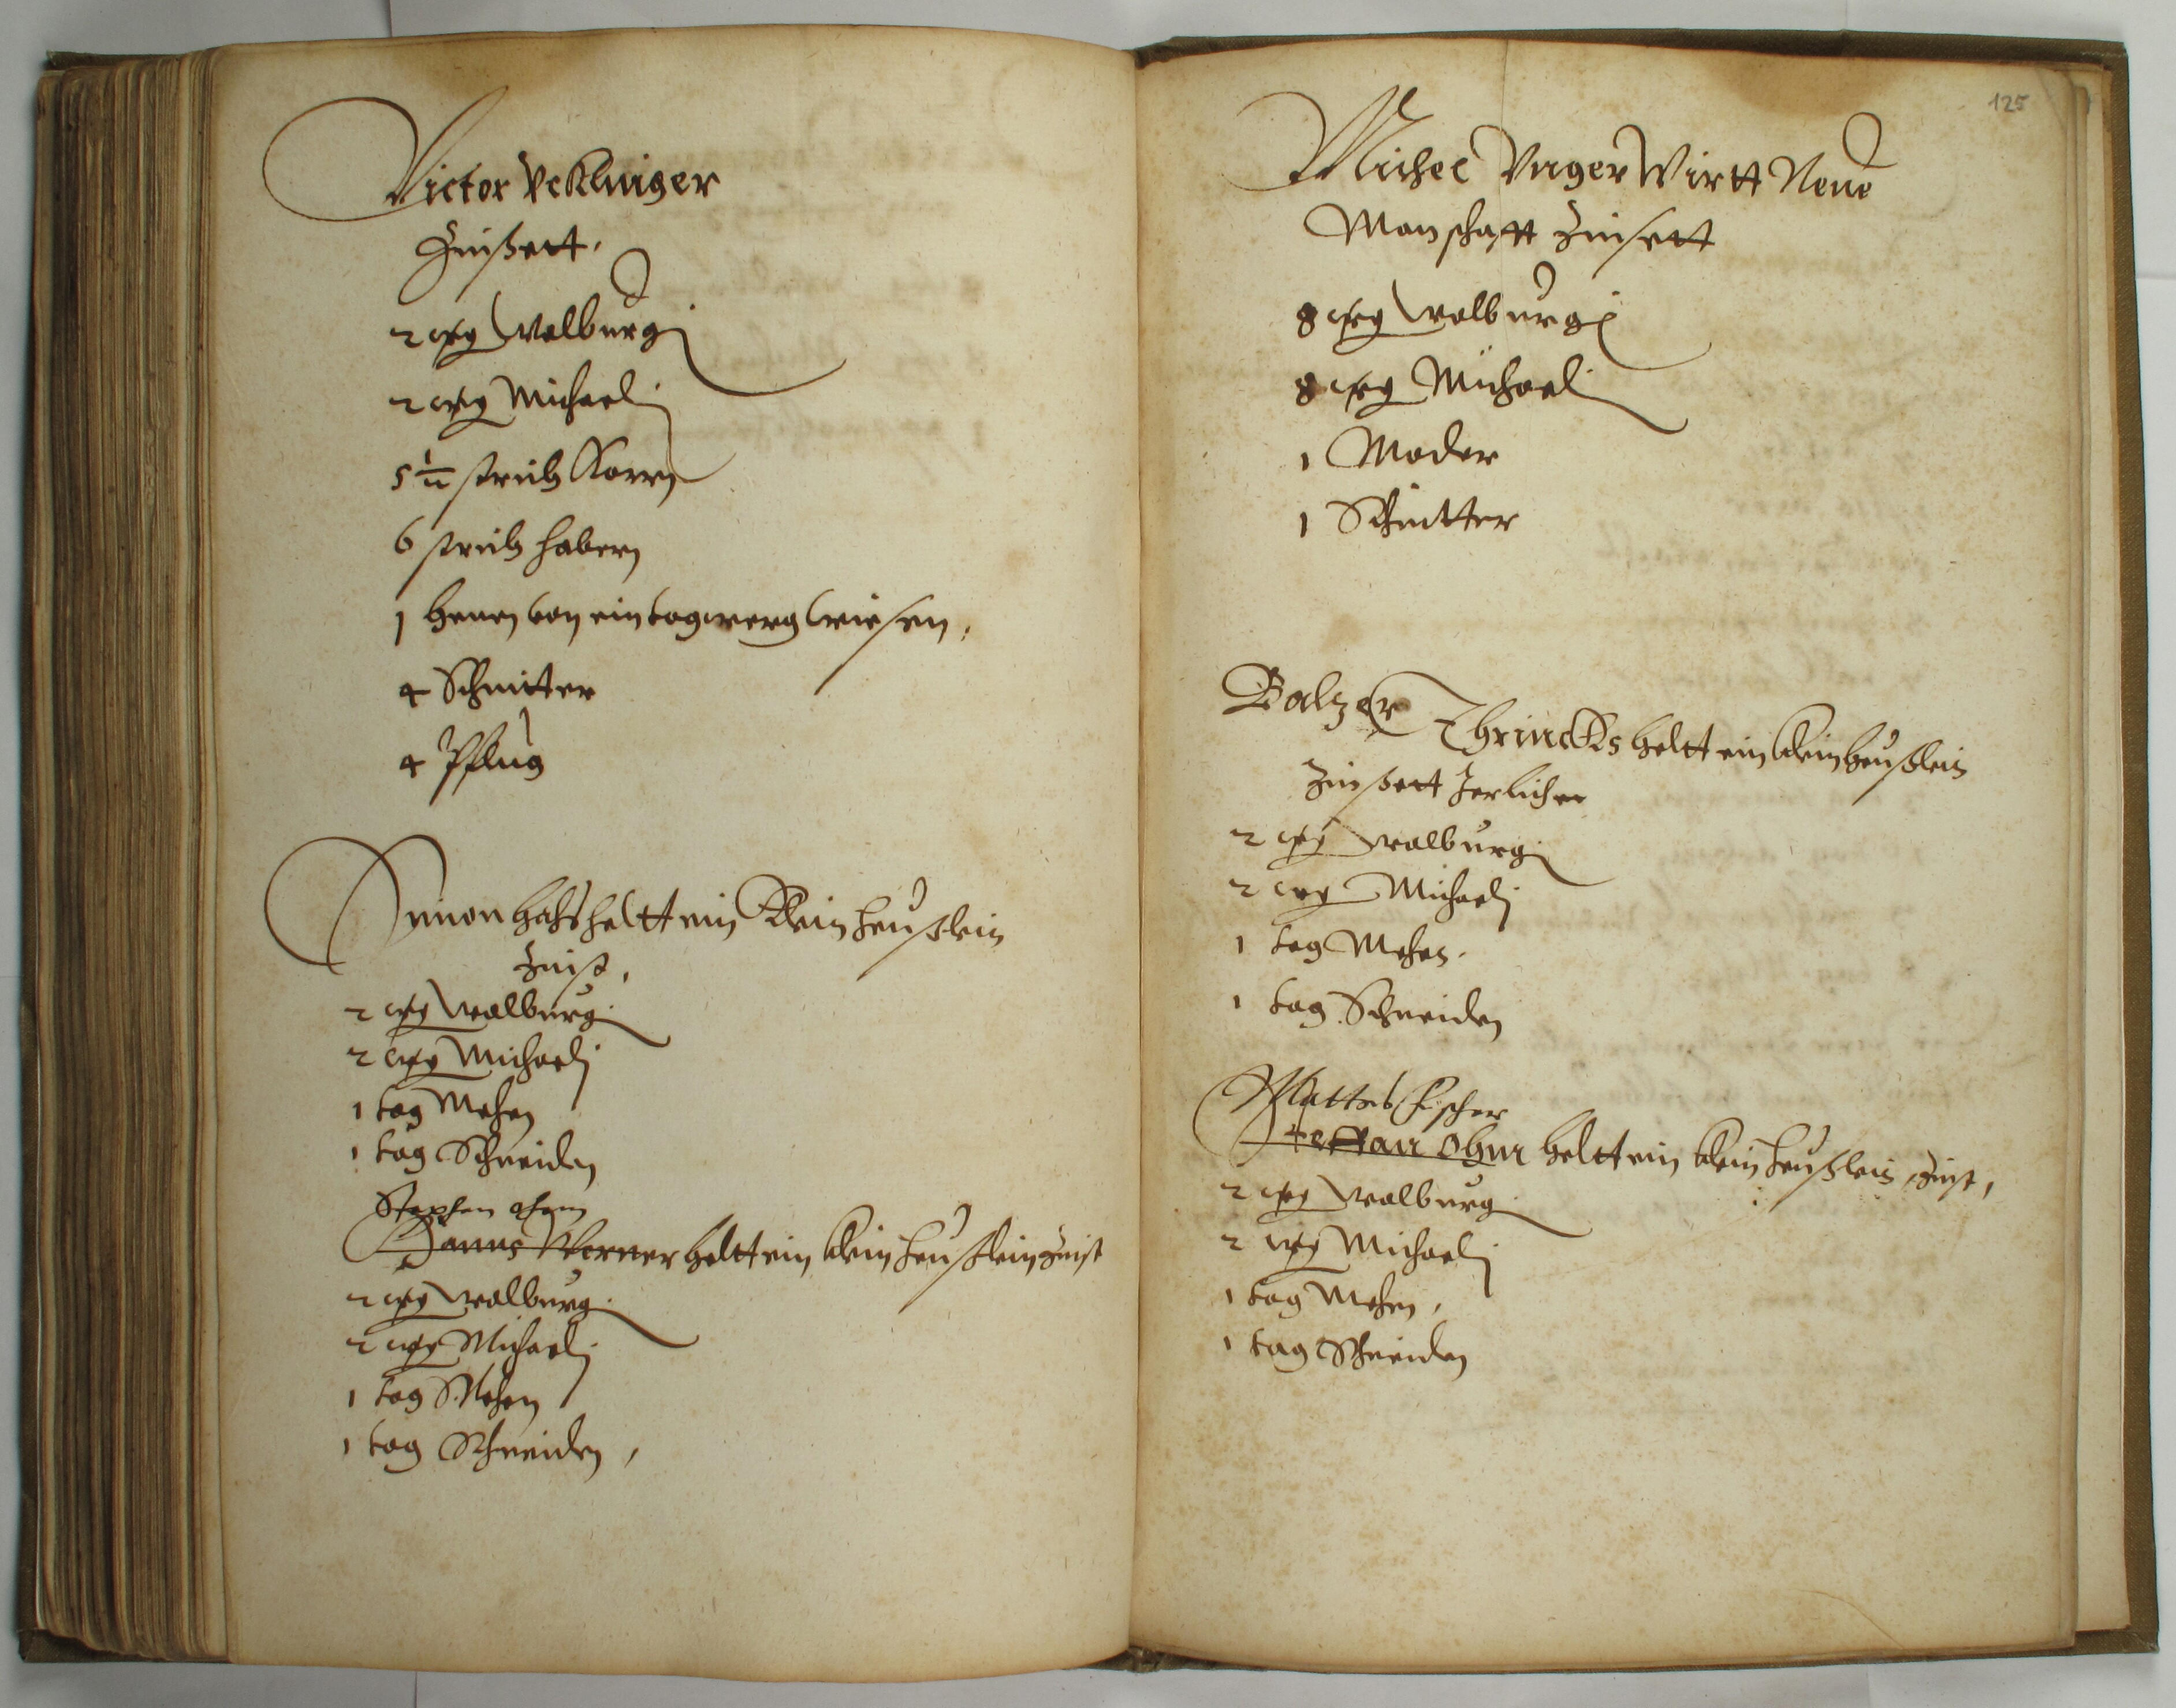 Victor Veklniger
Zinßett.
2 wg Walburgi
2 wg Michaeli
5 1/2 strich Korn
6 strich habern
1 henen von ein tagwerg wiesen,
4 Schnitter
4 Pflug
Simon hahs heltt ein klein heußlein
Zinst,
2 wg walburgi
2 wg Michaelj
1 tag Mehen
1 tag Schneiden
Stephen ohem
Hanns Werner heltt ein klein heußlein Zinst
2 wg walburgi
2 wg Michaelj
1 tag Mehen
1 tag Schneiden,
125
Michel Unger Wirtt Neue
Manschafft Zinsett
8 wg walburgi
8 wg Michaeli
1 Mader
1 Schnitter
Balzer Thrincks heltt ein klein heußlein
Zinßett Jerlichen
2 wg walburgi
2 wg Michaelj
1 tag Mehen.
1 tag Schneiden
Mattes Fischer
Steffan Ohm heltt ein klein heußlein, Zinst,
2 wg walburgi
2 wg Michaelj
1 tag Mehen,
1 tag Schneiden